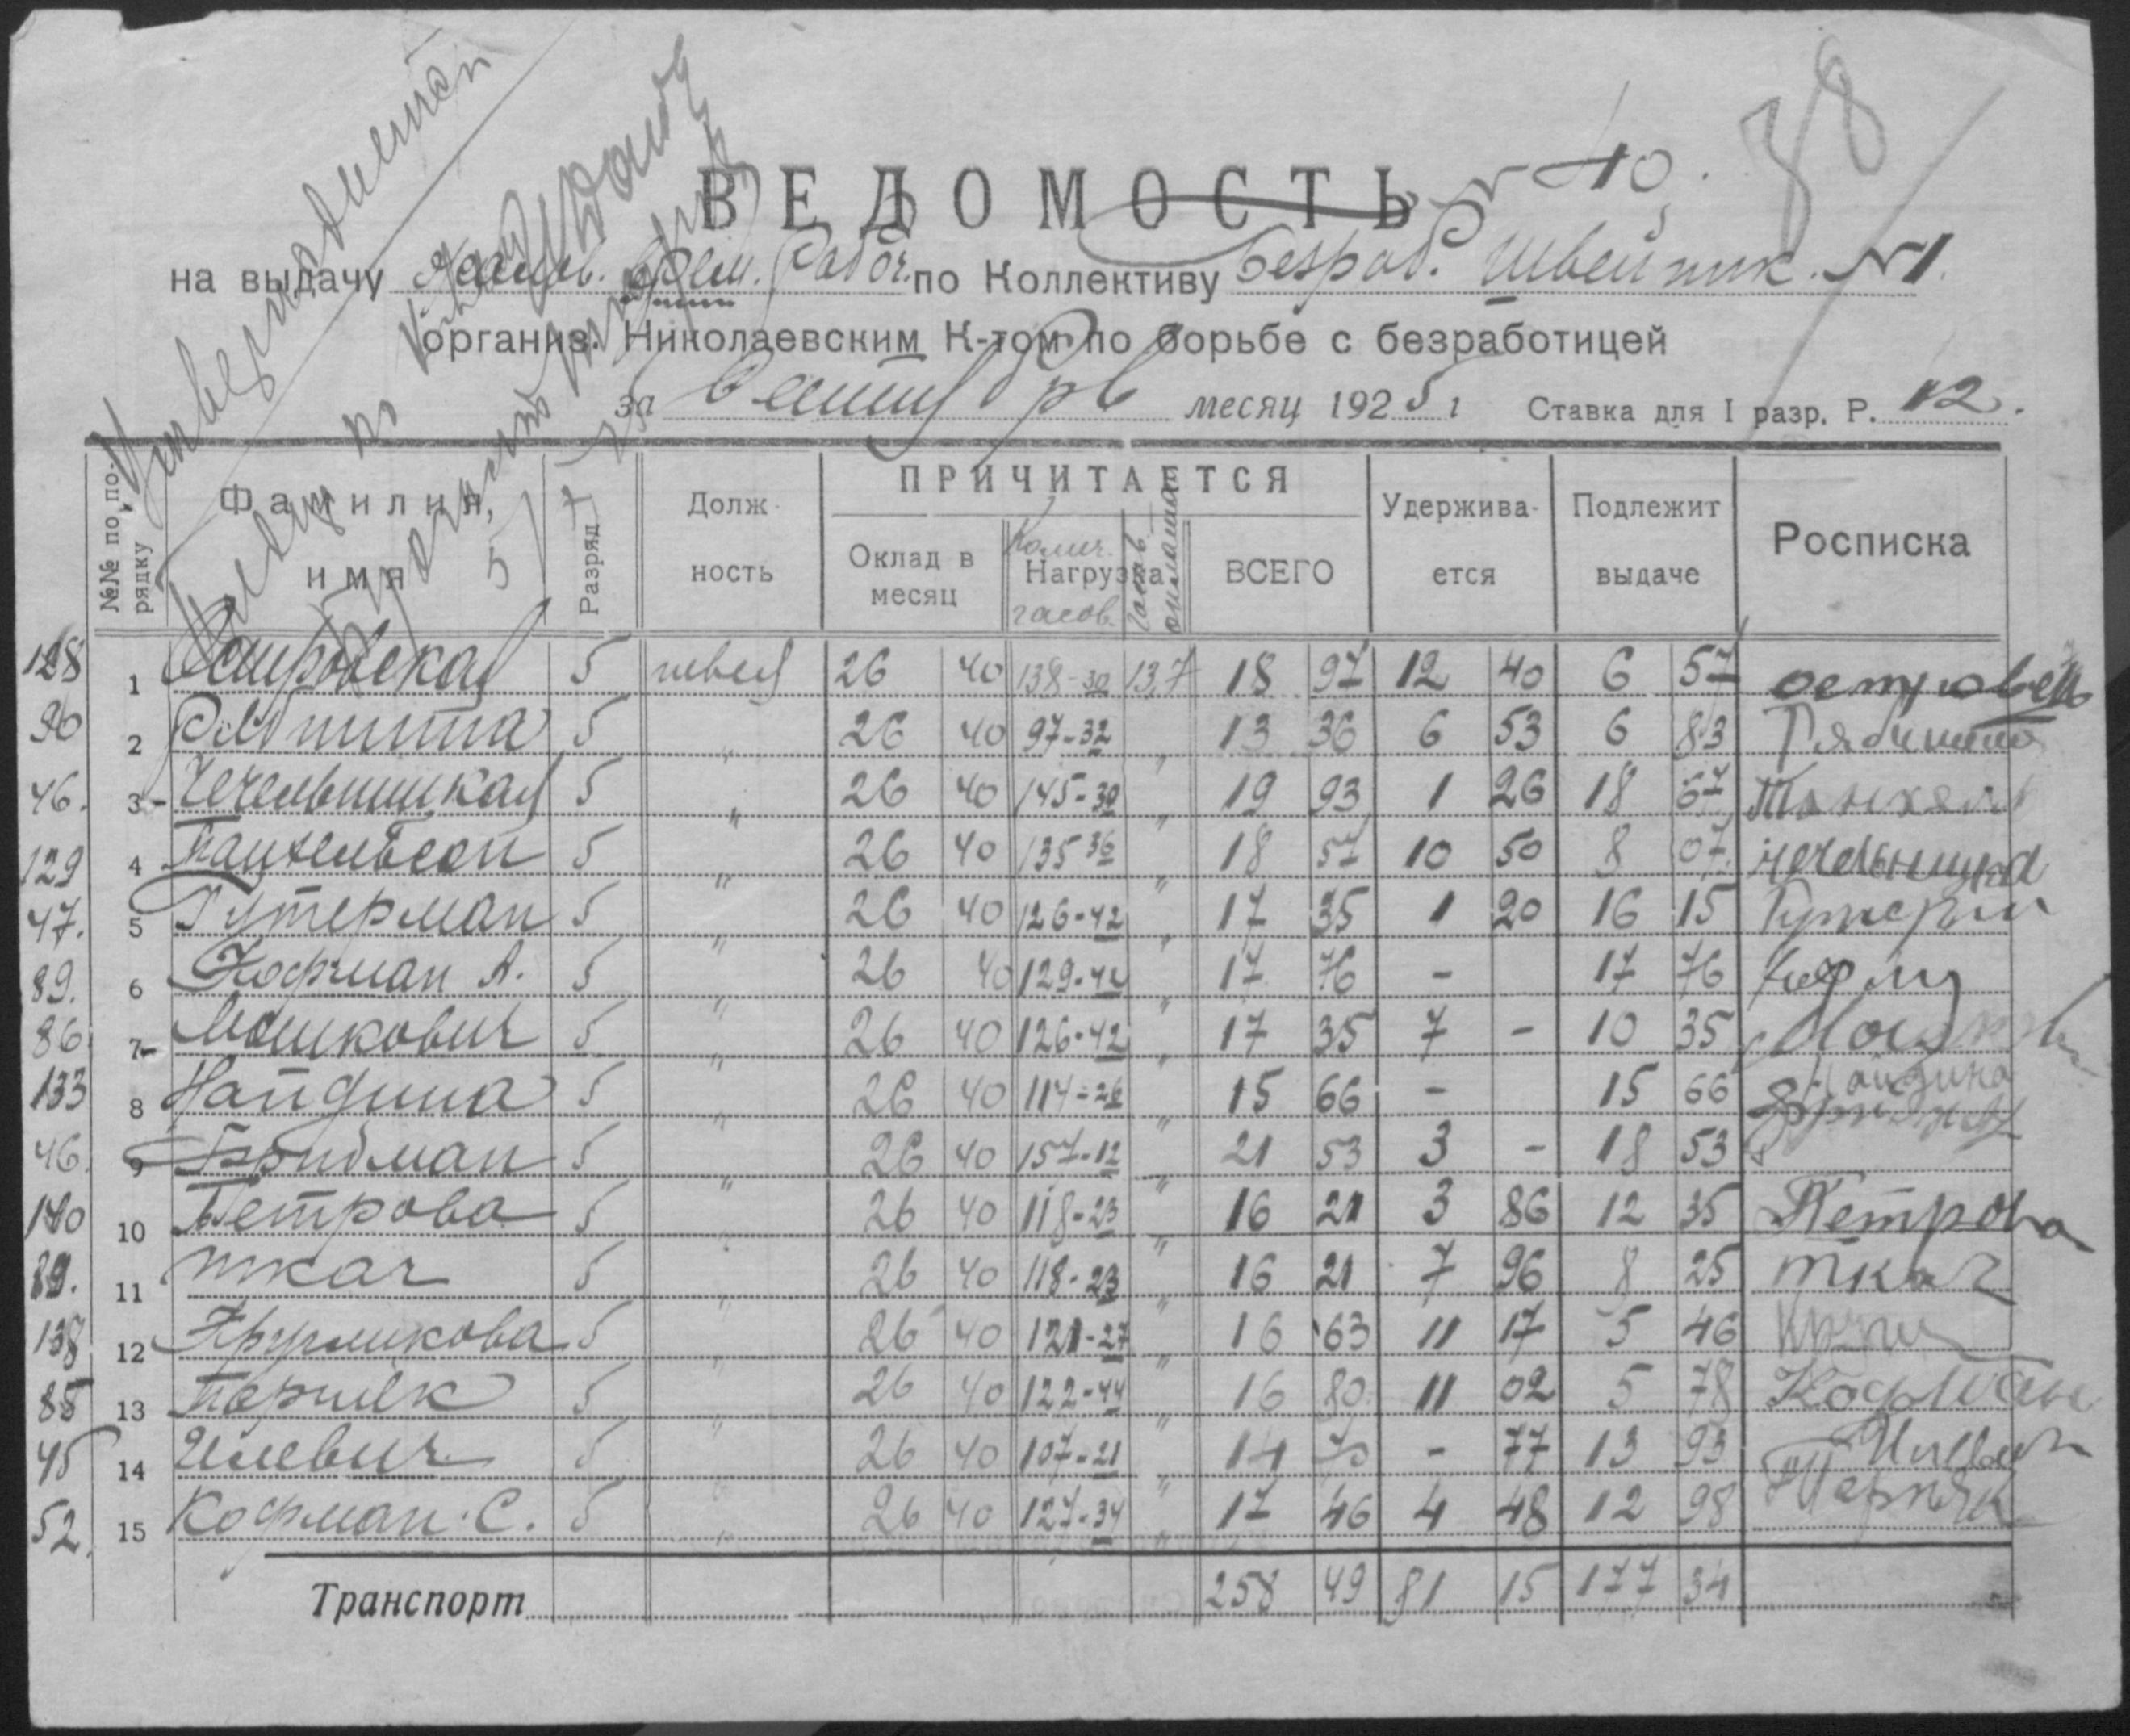 38
ВЕДОМОСТЬ № 10.
на выдачу Жалов. врем. Рабоч. по Коллективу безраб. Швейник. №1.
организ. Николаевским К-том по борьбе с безработицей
за Сентябрь месяц 1925 г Ставка для I разр. Р. 12.
№№ по по-рядку Фамилия, имя Разряд Долж-ность ПРИЧИТАЕТСЯ Удержива-ется Подлежит выдаче Росписка
Оклад в месяц Колич. Нагрузка часов. ВСЕГО
128 1 Островская 5 швея 26 40 138-30 13,7 18 97 12 40 6 57 островск
90 2 Рябинина 5 " 26 40 97-32 " 13 36 6 53 6 83 Рябинина
46. 3 Чечельницкая 5 " 26 40 145-30 " 19 93 1 26 18 67
129 4 Танхельсон 5 " 26 40 135 36 " 18 57 10 50 8 07 чечельницка
47. 5 Гутерман 5 " 26 40 126-42 " 17 35 1 20 16 15 Гутерм
89. 6 Кофман А. 5 " 26 40 129-42 " 17 76 - 17 76
86 7 Мошкович 5 " 26 40 126-42 " 17 35 7 - 10 35
133 8 Найдина 5 " 26 40 114-26 " 15 66 - 15 66 Найдина
46. 9 Бридман 5 " 26 40 157-12 " 21 53 3 - 18 53
140 10 Петрова 5 " 26 40 118-23 " 16 21 3 86 12 35 Петрова
89. 11 Ткач 5 " 26 40 118-23 " 16 21 7 96 8 25 ткач
138 12 Кругликова 5 " 26 40 121-27 " 16 63 11 17 5 46
85 13 Терняк 5 " 26 40 122-44 " 16 80 11 02 5 78 Кофман
45 14 Илевич 5 " 26 40 107-21 " 14 70 - 77 13 93 Илевич
52. 15 Кофман С. 5 " 26 40 127-34 " 17 46 4 48 12 98 Терняк
Транспорт 258 49 81 15 177 34